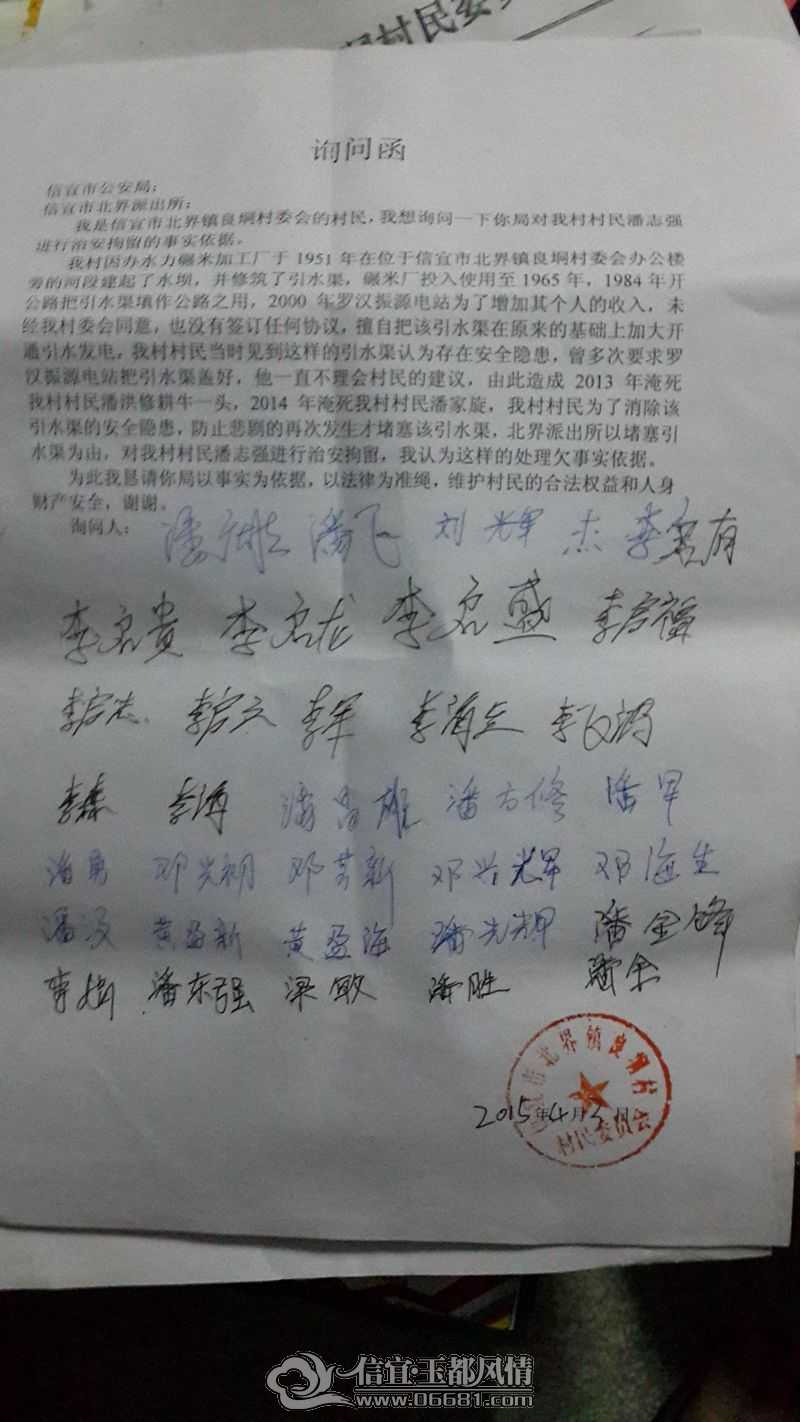 村民委
询问函
信宜市公安局:
信宜市北界派出所:
我是信宜市北界镇良垌村委会的村民,我想询问一下你局对我村村民潘志强
进行治安拘留的事实依据。
我村因办水力碾米加工厂于1951年在位于信宜市北界镇良垌村委会办公楼
旁的河段建起了水坝,并修筑了引水渠,碾米厂投入使用至1965年,1984年开
公路把引水渠填作公路之用,2000年罗汉振源电站为了增加其个人的收入,未
经我村委会同意,也没有签订任何协议,擅自把该引水渠在原来的基础上加大开
通引水发电,我村村民当时见到这样的引水渠认为存在安全隐患,曾多次要求罗
汉振源电站把引水渠盖好,他一直不理会村民的建议,由此造成2013年淹死
我村村民潘洪修耕牛一头,2014年淹死我村村民潘家旋,我村村民为了消除该
引水渠的安全隐患,防止悲剧的再次发生才堵塞该引水渠,北界派出所以堵塞引
水渠为由,对我村村民潘志强进行治安拘留,我认为这样的处理欠事实依据。
为此我恳请你局以事实为依据,以法律为准绳,维护村民的合法权益和人身
财产安全,谢谢。
询问人: 潘飞 刘光军 杰 李名有
李名贵 李名龙 李名盛 李启福
李启志 李军
李森 李海 潘方修 潘早
潘勇 邓光明 邓兴辉 邓海生
黄盈新 黄盈海 潘光辉 潘金锋
潘东强 梁敏 潘胜
市北界镇良垌村
村民委员会
2015年4月 日
信宜·玉都风情
www.06681.com